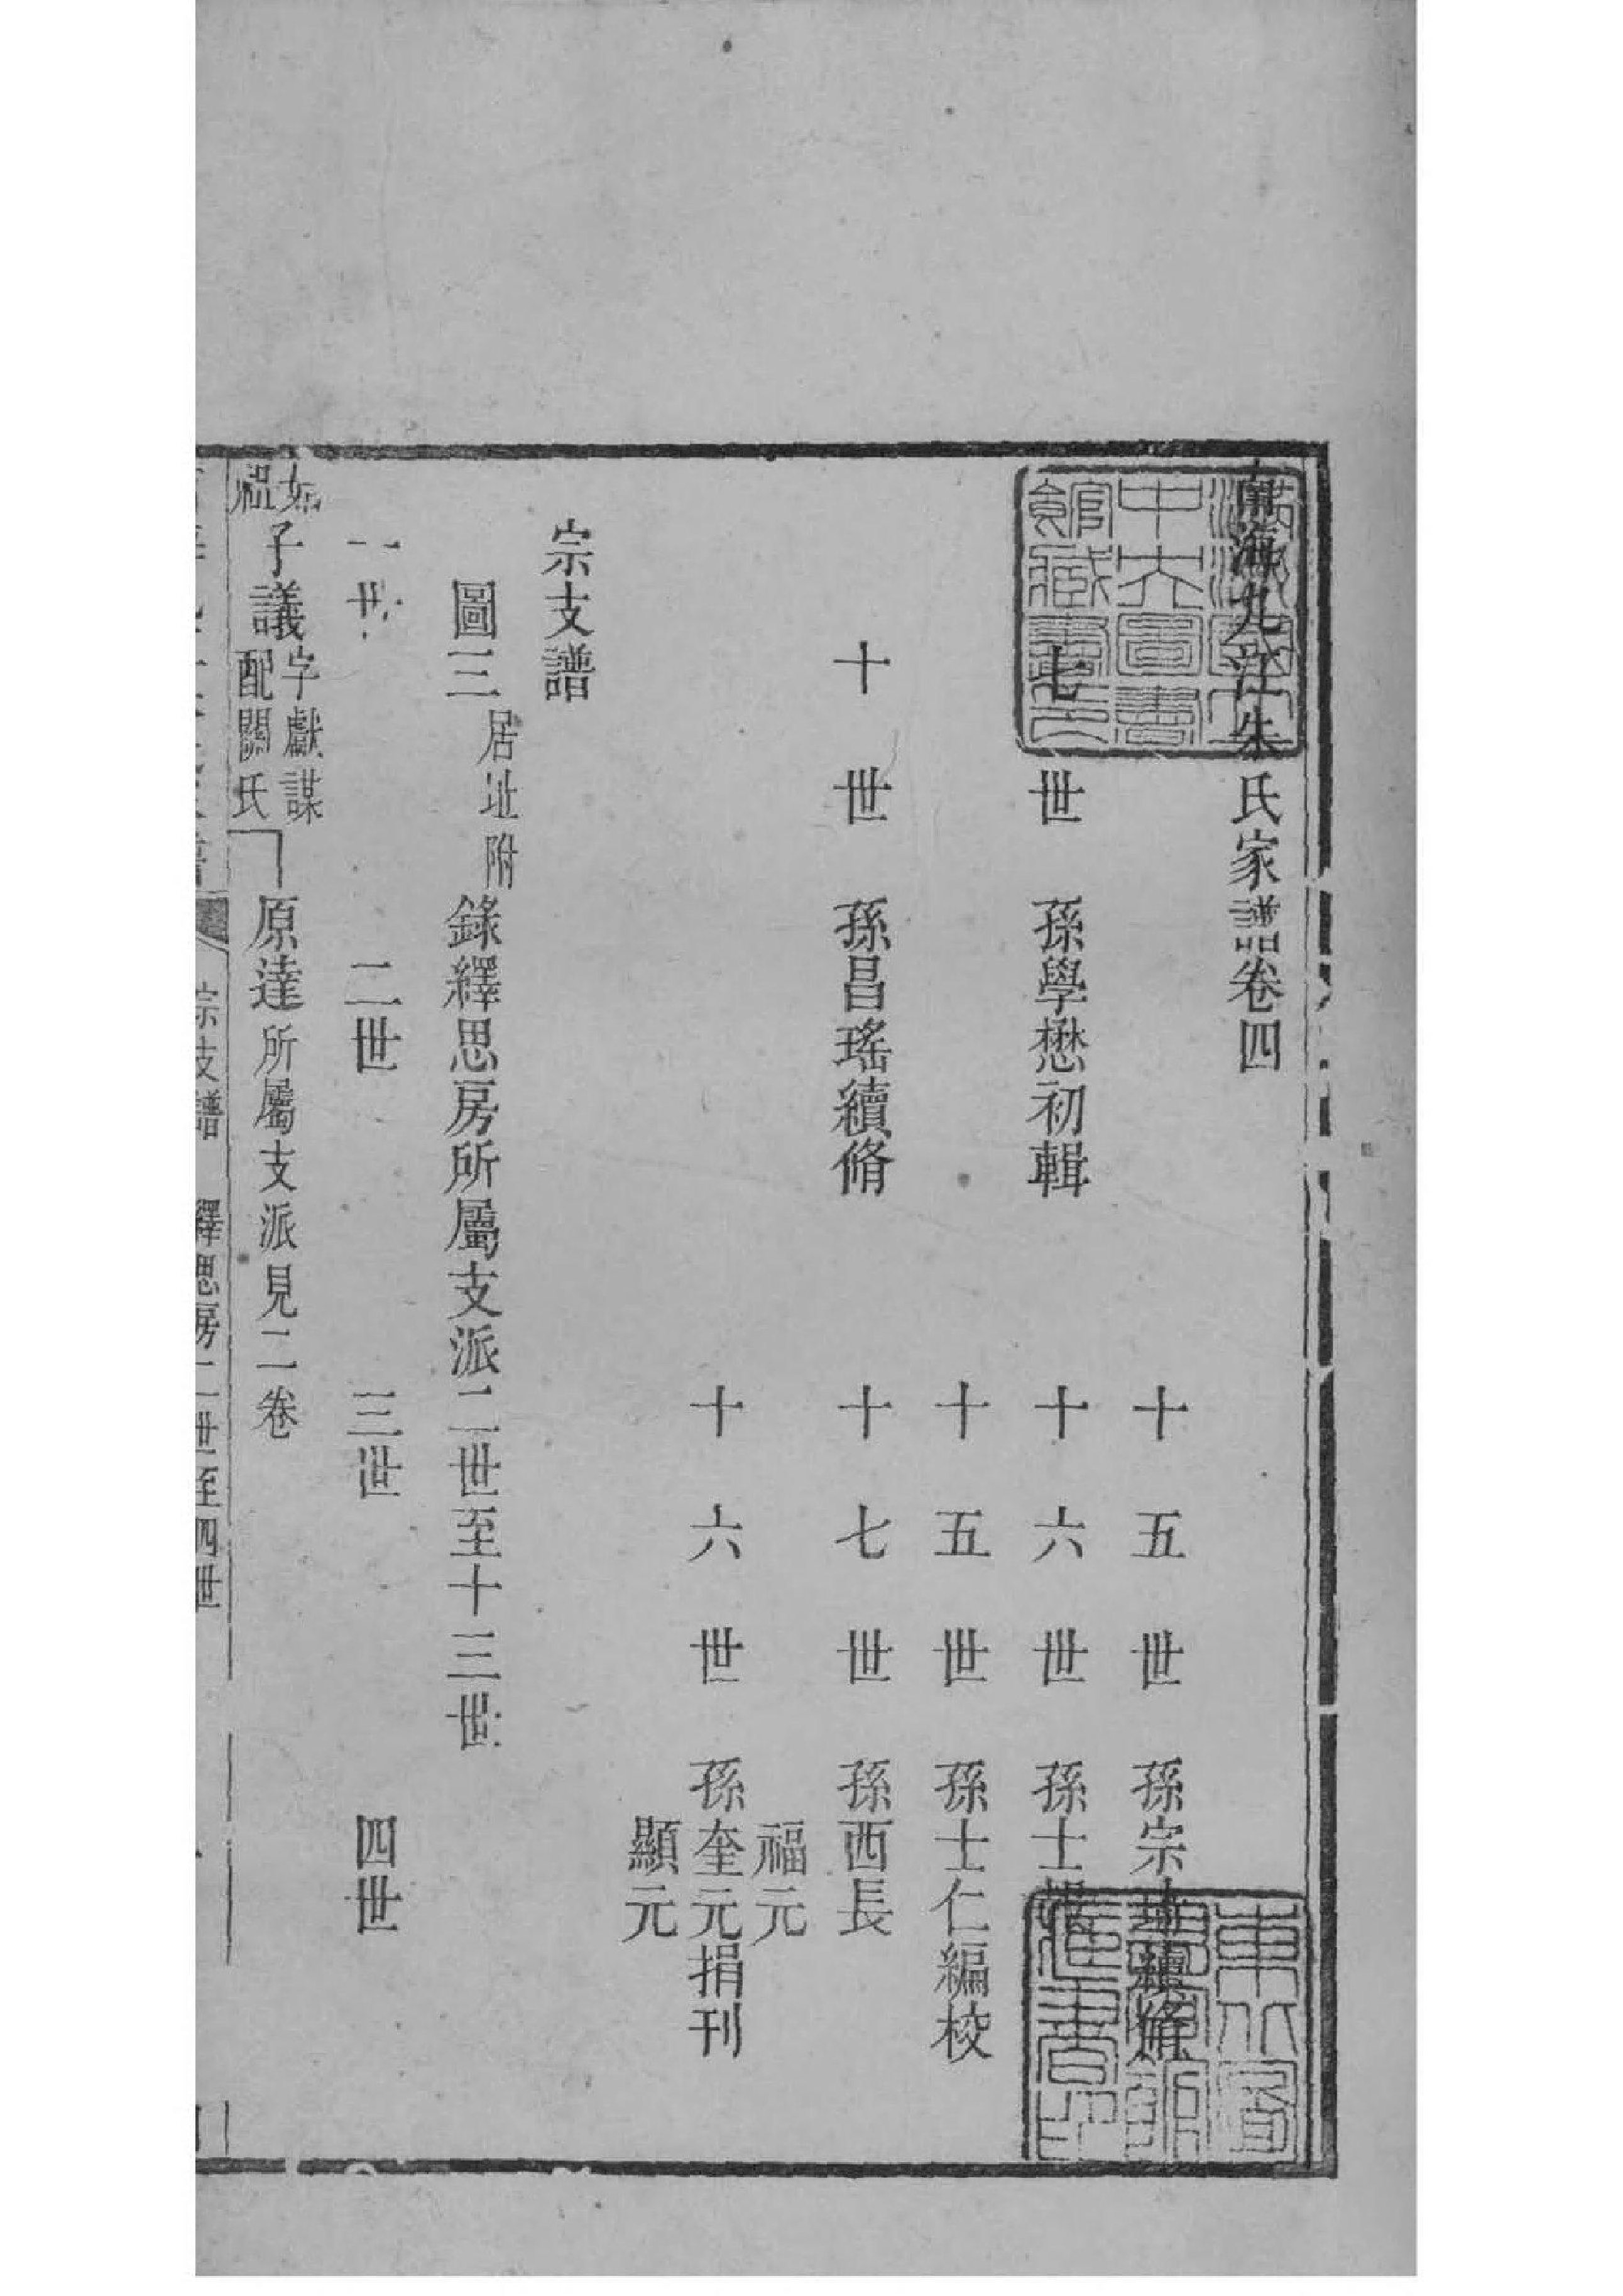 南海九江朱氏家譜卷四
十五世孫宗琦續脩
七世孫學懋初輯
十六世孫士報
十五世孫士仁編校
十世孫昌瑤續脩
十七世孫西長
福元
十六世孫奎元捐刊
顯元
宗支譜
圖三居址附錄繹思房所屬支派二世至十三世
一世 二世 三世 四世
始祖子議字獻謀配關氏
原達所屬支派見二卷
宗支譜 繹思房二世至四世